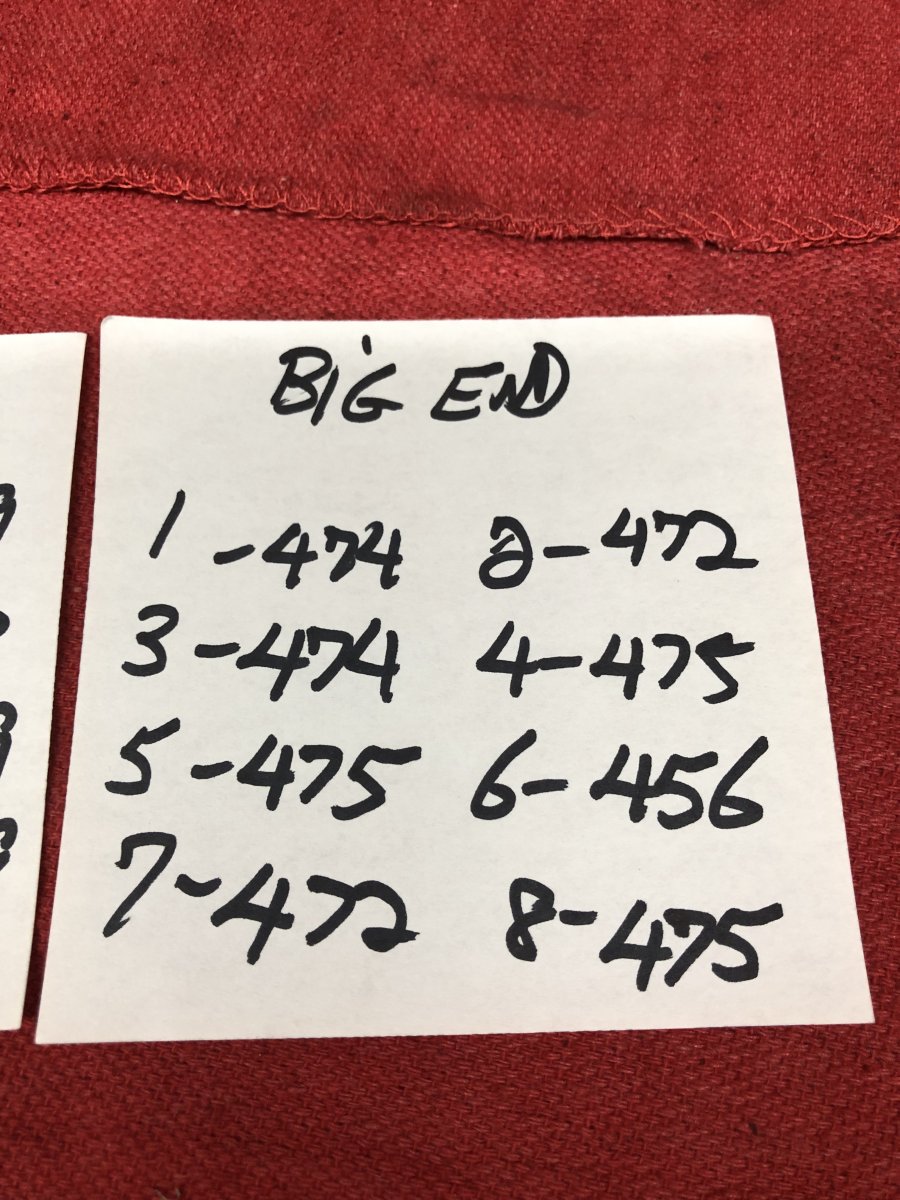 BiG END
1 -474 2-472
3-474 4-475
5-475 6-456
7-472 8-475